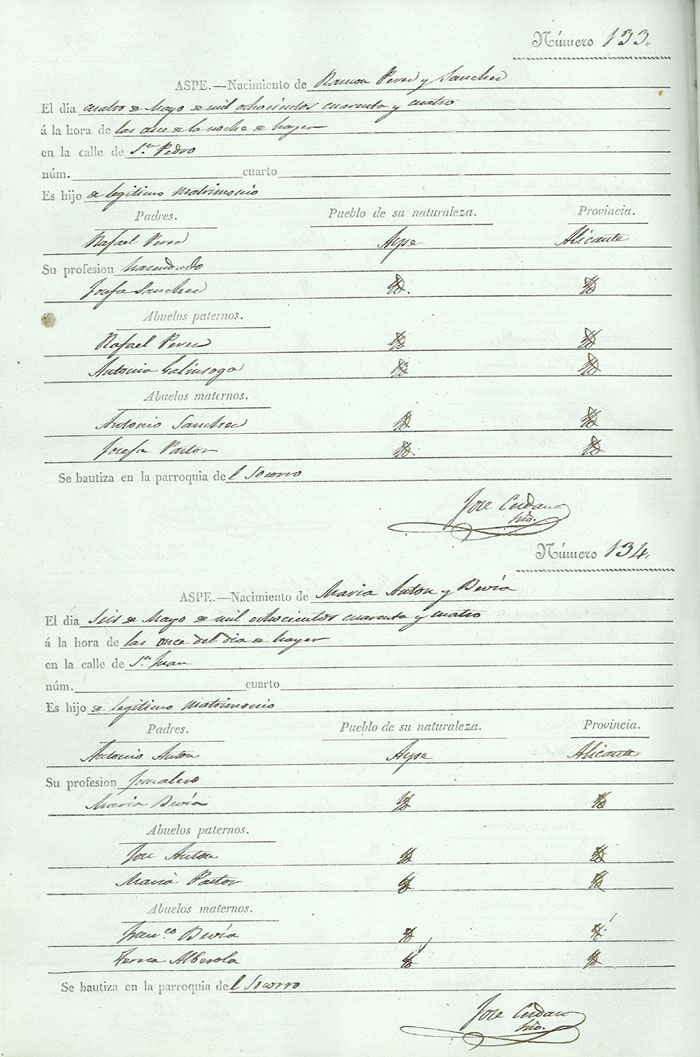 Número 133.
ASPE.—Nacimiento de Ramon Perez y Sanchez
El dia cuatro de Mayo de mil ochocientos cuarenta y cuatro
á la hora de las once de la noche de hayer
en la calle de Sn. Pedro
núm. cuarto
Es hijo de legitimo matrimonio
Padres. Pueblo de su naturaleza. Provincia.
Rafael Perez Aspe Alicante
Su profesion hacendado
Josefa Sanchez Yd. Yd.
Abuelos paternos.
Rafael Perez Yd. Yd.
Antonia Galinsoga Yd. Yd.
Abuelos maternos.
Antonio Sanchez Yd. Yd.
Josefa Pastor Yd. Yd.
Se bautiza en la parroquia del Socorro
Jose
Srio.
Número 134.
ASPE.—Nacimiento de Maria Anton y Devia
El dia Seis de Mayo de mil ochocientos cuarenta y cuatro
á la hora de las once del dia de hayer
en la calle de Sn. Juan
núm. cuarto
Es hijo de legitimo matrimonio
Padres. Pueblo de su naturaleza. Provincia.
Antonio Anton Aspe Alicante
Su profesion Jornalero
Maria Devia Yd. Yd.
Abuelos paternos.
Jose Anton Yd. Yd.
Maria Pastor Yd. Yd.
Abuelos maternos.
Franco. Devia Yd. Yd.
Teresa Alberola Yd. Yd.
Se bautiza en la parroquia del Socorro
Jose
Srio.